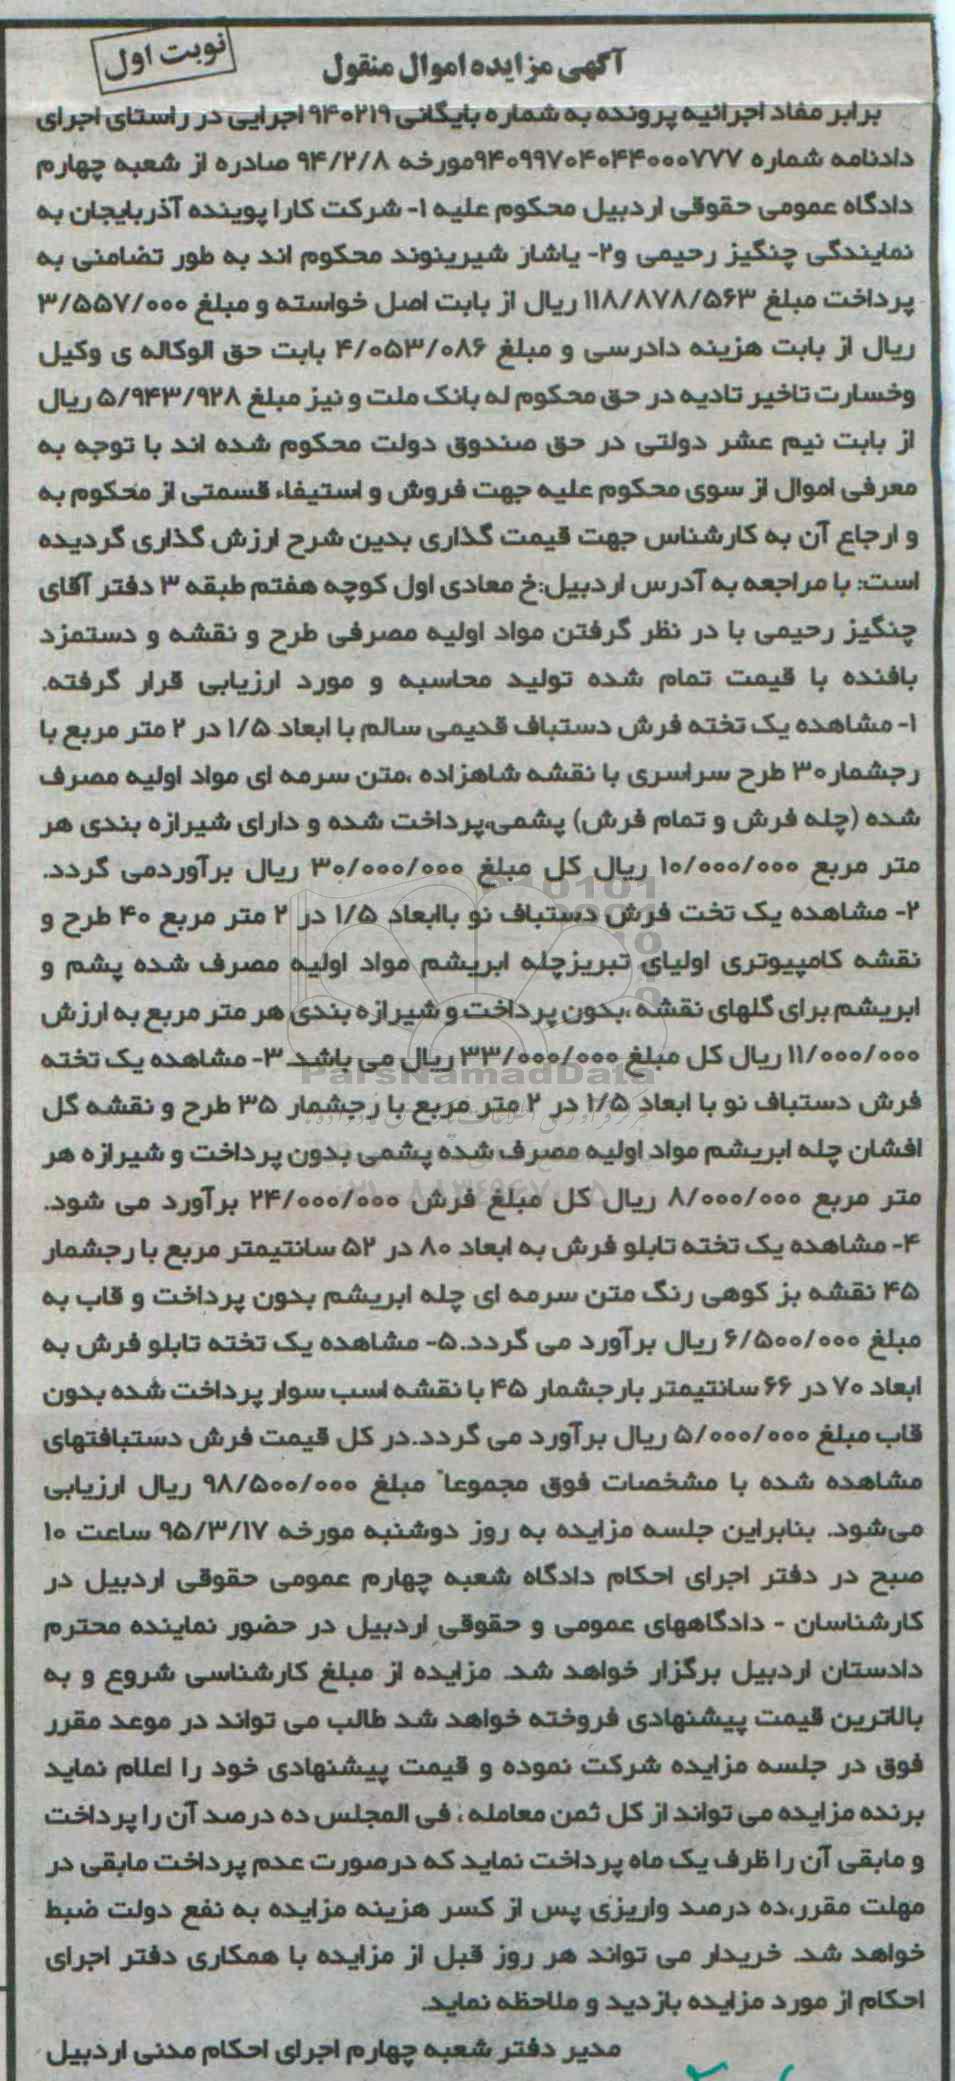 نوبت اول
آگهی مزایده اموال منقول
برابر مفاد اجرائیه پرونده به شماره بایگانی ۹۴۰۲۱۹ اجرایی در راستای اجرای
دادنامه شماره ۹۴۰۹۹۷۰۴۰۴۴۰۰۰۷۷۷مورخه ۹۴/۲/۸ صادره از شعبه چهارم
دادگاه عمومی حقوقی اردبیل محکوم علیه ۱- شرکت کارا پوینده آذربایجان به
نمایندگی چنگیز رحیمی و۲- یاشار شیرینوند محکوم اند به طور تضامنی به
پرداخت مبلغ ۱۱۸/۸۷۸/۵۶۳ ریال از بابت اصل خواسته و مبلغ ۳/۵۵۷/۰۰۰
ریال از بابت هزینه دادرسی و مبلغ ۴/۰۵۳/۰۸۶ بابت حق الوکاله ی وکیل
وخسارت تاخیر تادیه در حق محکوم له بانک ملت و نیز مبلغ ۵/۹۴۳/۹۲۸ ریال
از بابت نیم عشر دولتی در حق صندوق دولت محکوم شده اند با توجه به
معرفی اموال از سوی محکوم علیه جهت فروش و استیفاء قسمتی از محکوم به
و ارجاع آن به کارشناس جهت قیمت گذاری بدین شرح ارزش گذاری گردیده
است: با مراجعه به آدرس اردبیل:خ معادی اول کوچه هفتم طبقه ۳ دفتر آقای
چنگیز رحیمی با در نظر گرفتن مواد اولیه مصرفی طرح و نقشه و دستمزد
بافنده با قیمت تمام شده تولید محاسبه و مورد ارزیابی قرار گرفته.
۱- مشاهده یک تخته فرش دستباف قدیمی سالم با ابعاد ۱/۵ در ۲ متر مربع با
رجشمار۳۰ طرح سراسری با نقشه شاهزاده ،متن سرمه ای مواد اولیه مصرف
شده (چله فرش و تمام فرش) پشمی،پرداخت شده و دارای شیرازه بندی هر
متر مربع ۱۰/۰۰۰/۰۰۰ ریال کل مبلغ ۳۰/۰۰۰/۰۰۰ ریال برآوردمی گردد.
۲- مشاهده یک تخت فرش دستباف نو باابعاد ۱/۵ در ۲ متر مربع ۴۰ طرح و
نقشه کامپیوتری اولیای تبریزچله ابریشم مواد اولیه مصرف شده پشم و
ابریشم برای گلهای نقشه ،بدون پرداخت و شیرازه بندی هر متر مربع به ارزش
۱۱/۰۰۰/۰۰۰ ریال کل مبلغ ۳۳/۰۰۰/۰۰۰ ریال می باشد. ۳- مشاهده یک تخته
ParsNamadData
فرش دستباف نو با ابعاد ۱/۵ در ۲ متر مربع با رجشمار ۳۵ طرح و نقشه گل
افشان چله ابریشم مواد اولیه مصرف شده پشمی بدون پرداخت و شیرازه هر
متر مربع ۸/۰۰۰/۰۰۰ ریال کل مبلغ فرش ۲۴/۰۰۰/۰۰۰ برآورد می شود.
۴- مشاهده یک تخته تابلو فرش به ابعاد ۸۰ در ۵۲ سانتیمتر مربع با رجشمار
۴۵ نقشه بز کوهی رنگ متن سرمه ای چله ابریشم بدون پرداخت و قاب به
مبلغ ۶/۵۰۰/۰۰۰ ریال برآورد می گردد.۵- مشاهده یک تخته تابلو فرش به
ابعاد ۷۰ در ۶۶ سانتیمتر بارجشمار ۴۵ با نقشه اسب سوار پرداخت شده بدون
قاب مبلغ ۵/۰۰۰/۰۰۰ ریال برآورد می گردد.در کل قیمت فرش دستبافتهای
مشاهده شده با مشخصات فوق مجموعاً مبلغ ۹۸/۵۰۰/۰۰۰ ریال ارزیابی
می‌شود. بنابراین جلسه مزایده به روز دوشنبه مورخه ۹۵/۳/۱۷ ساعت ۱۰
صبح در دفتر اجرای احکام دادگاه شعبه چهارم عمومی حقوقی اردبیل در
کارشناسان - دادگاههای عمومی و حقوقی اردبیل در حضور نماینده محترم
دادستان اردبیل برگزار خواهد شد. مزایده از مبلغ کارشناسی شروع و به
بالاترین قیمت پیشنهادی فروخته خواهد شد طالب می تواند در موعد مقرر
فوق در جلسه مزایده شرکت نموده و قیمت پیشنهادی خود را اعلام نماید
برنده مزایده می تواند از کل ثمن معامله ، فی المجلس ده درصد آن را پرداخت
و مابقی آن را ظرف یک ماه پرداخت نماید که درصورت عدم پرداخت مابقی در
مهلت مقرر،ده درصد واریزی پس از کسر هزینه مزایده به نفع دولت ضبط
خواهد شد. خریدار می تواند هر روز قبل از مزایده با همکاری دفتر اجرای
احکام از مورد مزایده بازدید و ملاحظه نماید.
مدیر دفتر شعبه چهارم اجرای احکام مدنی اردبیل